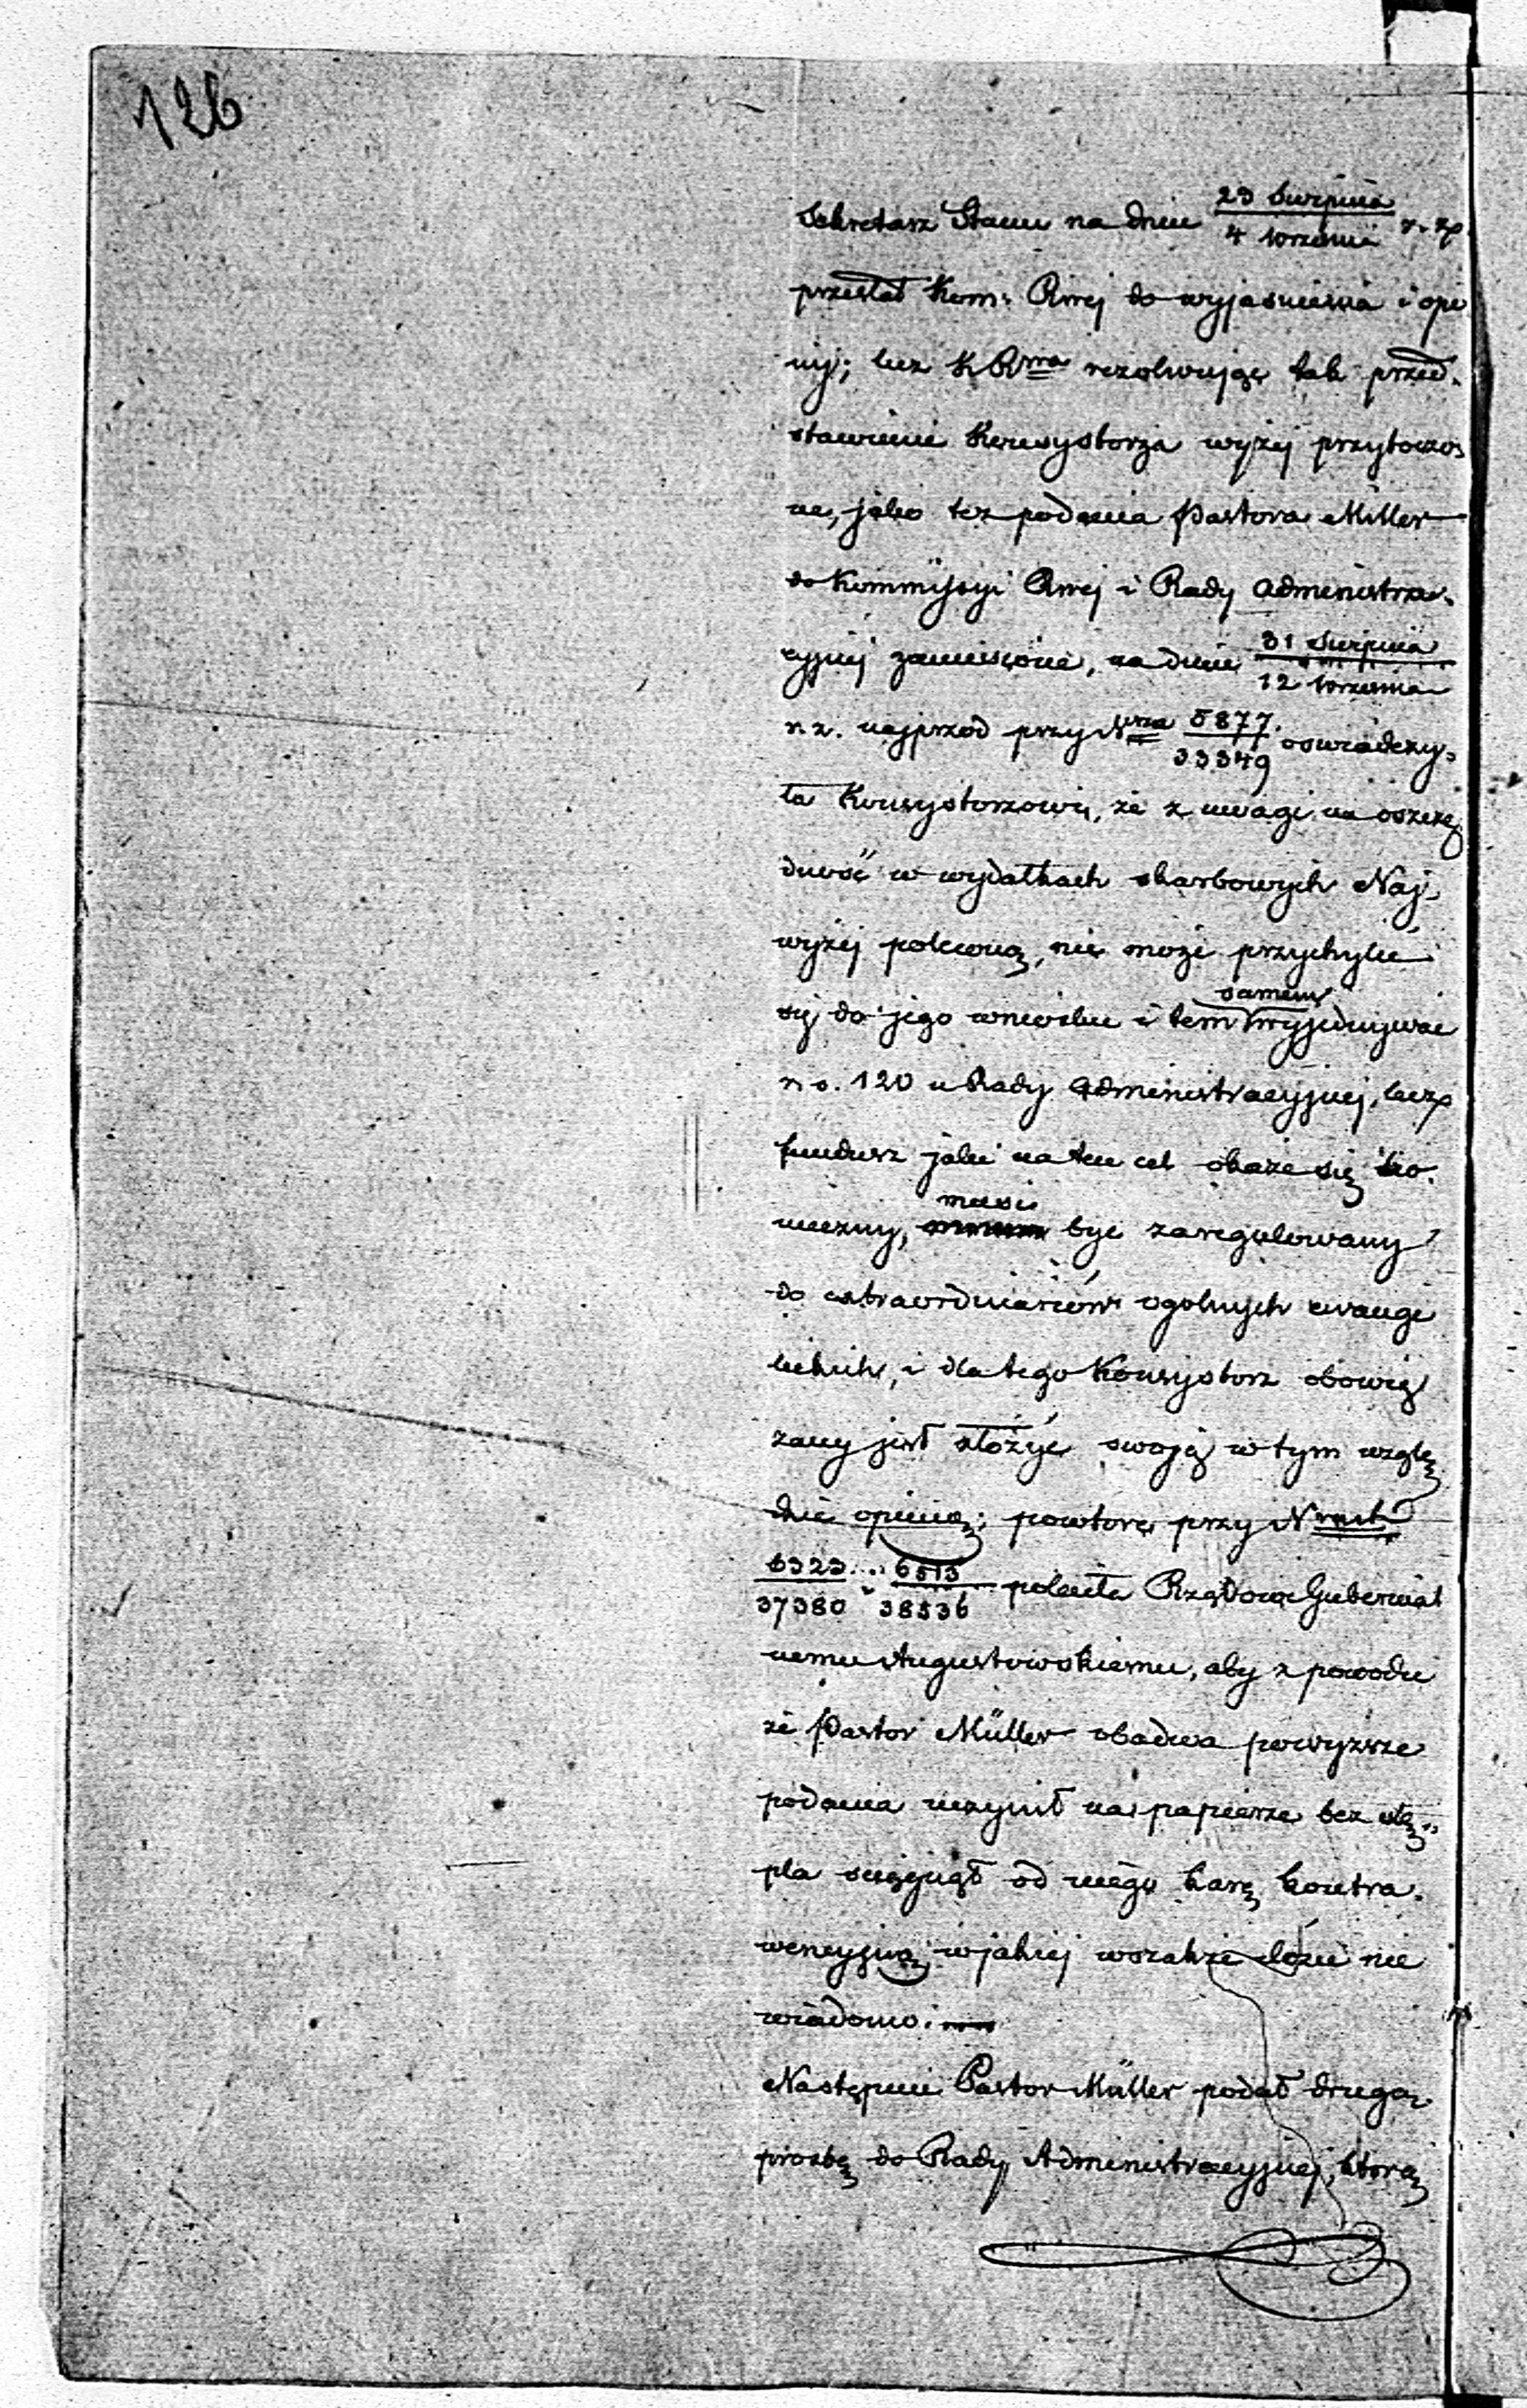 126
Sekretarz Stanu na dniu 23 Sierpnia / 4 Września r. z.
przesłał Kom: Rwej do wyjaśnienia i opi
nij; lecz K Rwa rezolwując tak przed-
stawienie Konsystorza wyżej przytoczo-
ne, jako też podania Pastora Miller
do Kommissyi Rwej i Rady Administra-
cyjnej zaniesione, na dniu 31 Sierpnia / 12 Września
r. z. najprzód przy Nrze 5877 / 33349 oswiadczy-
ła Konsystorzowi, że z uwagi na oszczę
dność w wydatkach skarbowych Naj-
wyżej poleconą, nie może przychylić
się do jego wniosku i tem samem wyjednywać
rs. 120 u Rady Administracyjnej, lecz
fundusz jaki na ten cel okaże się ko-
nieczny, musi być zaregulowany
do extraordinariów ogolnych ewange
lickich, i dla tego Konsystorz obowią
zany jest złożyć swoją w tym wzglę
dzie opinią; powtóre przy Nrach
6323 / 37380 i 6513 / 38536 poleciła Rządowi Gubernial
nemu Augustowskiemu, aby z powodu
że Pastor Müller obadwa powyższe
podania uczynił na papierze bez stę-
pla sciągnął od niego karę kontra-
wencyjną w jakiej wszakże ilości nie
wiadomo.
Następnie Pastor Müller podał drugą
prozbę do Rady Administracyjnej, którą